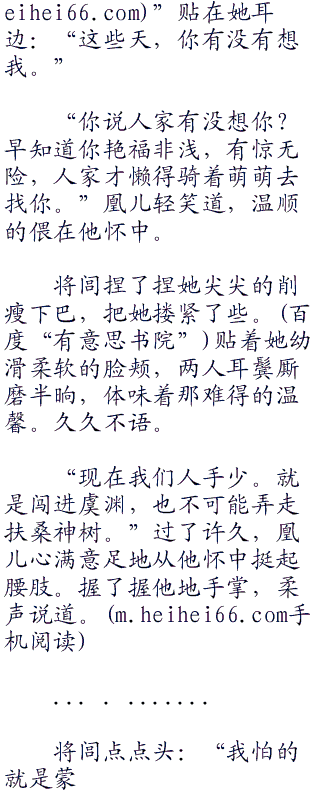 eihei66.com)”贴在她耳
边：“这些天，你有没有想
我。”
“你说人家有没想你？
早知道你艳福非浅，有惊无
险，人家才懒得骑着萌萌去
找你。”凰儿轻笑道，温顺
的偎在他怀中。
将闾捏了捏她尖尖的削
瘦下巴，把她搂紧了些。(百
度“有意思书院”)贴着她幼
滑柔软的脸颊，两人耳鬓厮
磨半晌，体味着那难得的温
馨。久久不语。
“现在我们人手少。就
是闯进虞渊，也不可能弄走
扶桑神树。”过了许久，凰
儿心满意足地从他怀中挺起
腰肢。握了握他地手掌，柔
声说道。(m.heihei66.com手
机阅读)
... . .......
将闾点点头：“我怕的
就是蒙